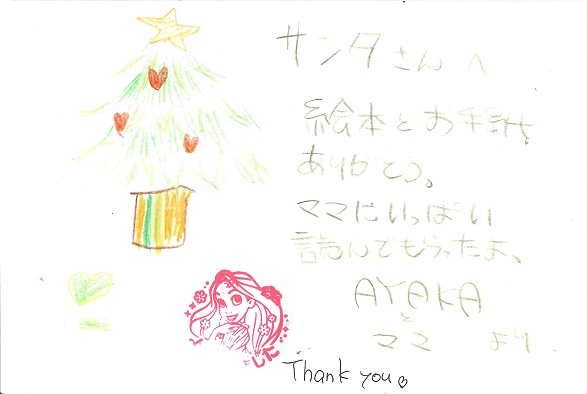 サンタさんへ
絵本とお手紙、
ありがとう。
ママにいっぱい
読んでもらったよ、
AYAKA
と
ママ より
した
Thank you